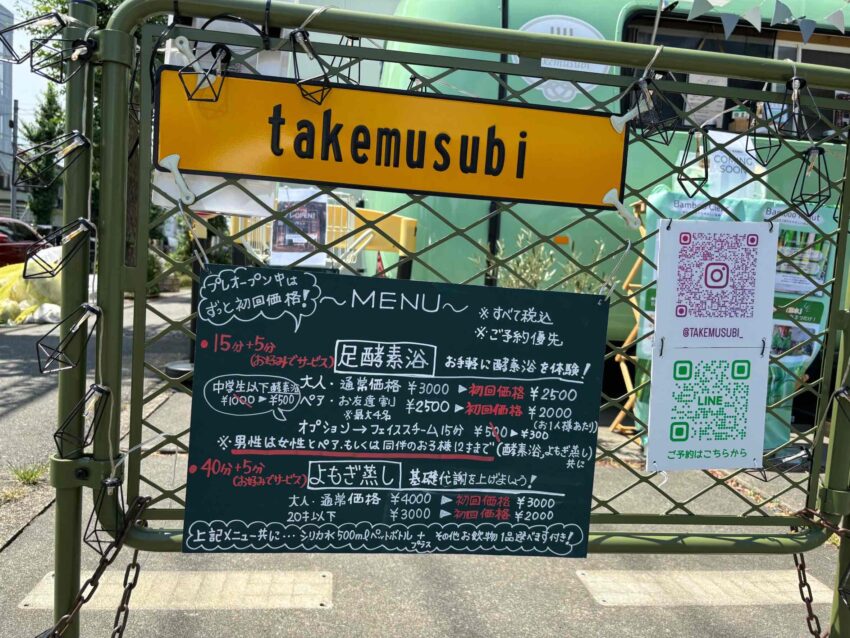 takemusubi
takemusubi
COMING
SOON
OPEN
プレオープン中は
ずっと初回価格!
～MENU～
※すべて税込
※ご予約優先
・15分+5分
(お好みでサービス)
足酵素浴
お手軽に酵素浴を体験!
中学生以下酵素浴
¥1000▶¥500
大人・通常価格 ¥3000▶初回価格 ¥2500
ペア・お友達割 ¥2500▶初回価格 ¥2000
※最大4名
(お1人様あたり)
オプション→フェイススチーム15分 ¥500▶¥300
※男性は女性とペア、もしくは同伴のお子様12才まで(酵素浴、よもぎ蒸し)共に
・40分+5分
(お好みでサービス)
よもぎ蒸し
基礎代謝を上げましょう!
大人・通常価格 ¥4000▶初回価格 ¥3000
20才以下 ¥3000▶初回価格 ¥2000
上記メニュー共に…シリカ水500mlペットボトル+プラスその他お飲物1品選べます付き!
@TAKEMUSUBI_
LINE
ご予約はこちらから